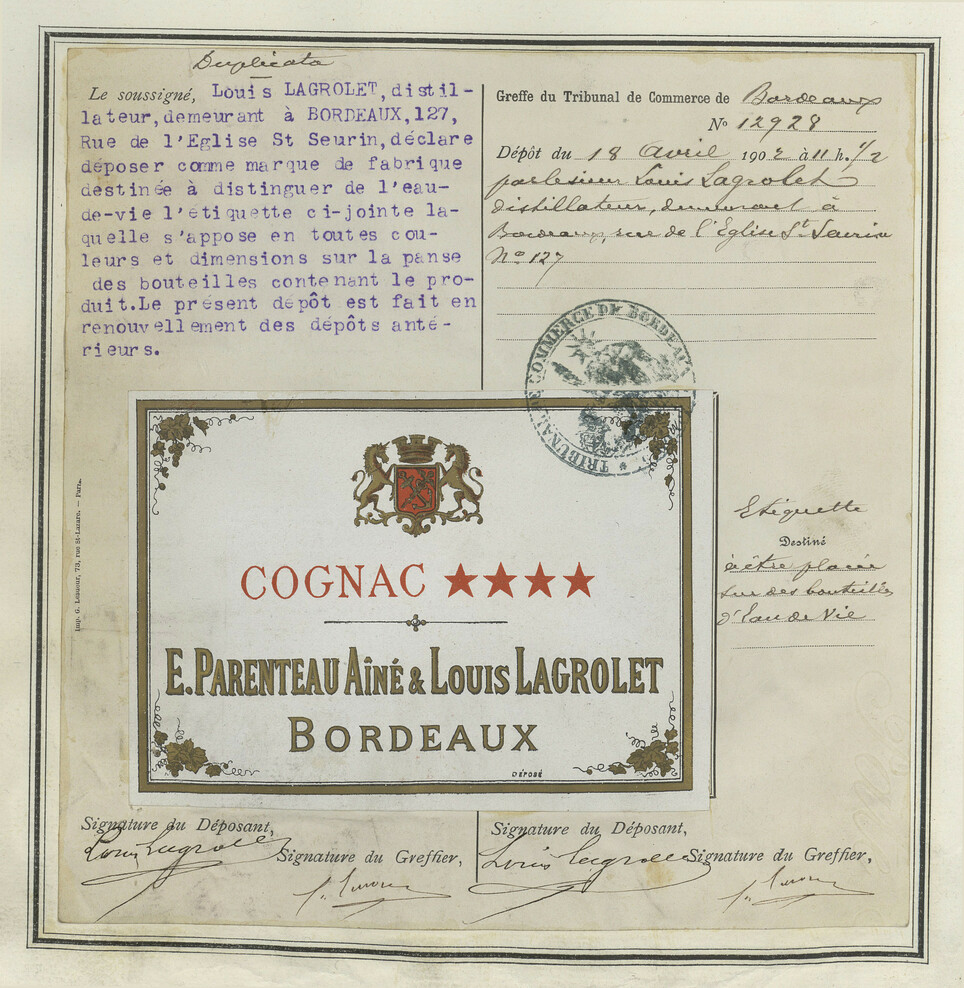 Duplicata
Le soussigné, Louis LAGROLET, distil-
lateur, demeurant à BORDEAUX, 127,
Rue de l'Eglise St Seurin, déclare
déposer comme marque de fabrique
destinée à distinguer de l'eau-
de-vie l'étiquette ci-jointe la-
quelle s'appose en toutes cou-
leurs et dimensions sur la panse
des bouteilles contenant le pro-
duit. Le présent dépôt est fait en
renouvellement des dépôts anté-
rieurs.
Greffe du Tribunal de Commerce de Bordeaux
No 12928
Dépôt du 18 Avril 1902 à 11 h. 1/2
par le sieur Louis Lagrolet
distillateur, demeurant à
Bordeaux, rue de l'Eglise St Seurin
No 127
TRIBUNAL DE COMMERCE DE BORDEAUX
COGNAC ★★★★
E. PARENTEAU AÎNÉ & LOUIS LAGROLET
BORDEAUX
DÉPOSÉ
Etiquette
Destiné
à être placée
sur des bouteilles
d'Eau de Vie
Imp. G. Lesueur, 73, rue St-Lazare. — Paris.
Signature du Déposant,
Louis Lagrolet
Signature du Greffier,
Signature du Déposant,
Louis Lagrolet
Signature du Greffier,